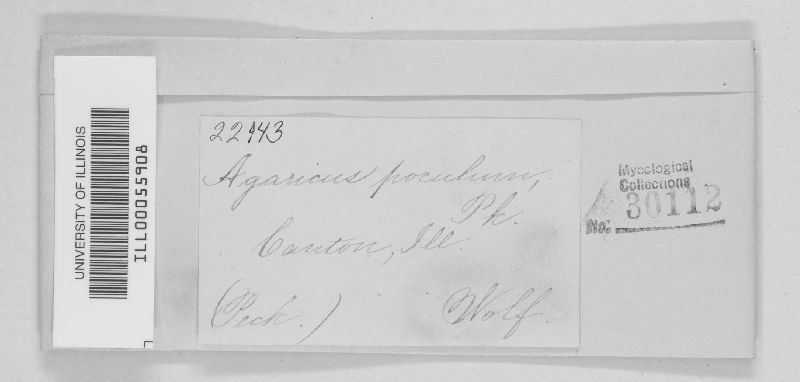 UNIVERSITY OF ILLINOIS
ILL00055908
22143
Agaricus poculum,
Pk.
Canton, Ill.
(Peck.) Wolf.
Mycological
Collections
No: 30112